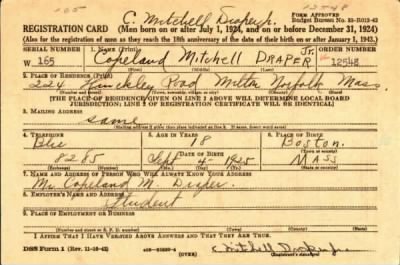 C. Mitchell Draper Jr.
12548
FORM APPROVED
REGISTRATION CARD
(Men born on or after July 1, 1924, and on or before December 31, 1924)
(Also for the registration of men as they reach the 18th anniversary of the date of their birth on or after January 1, 1943.)
SERIAL NUMBER
1. NAME (Print)
ORDER NUMBER
W 165
COPELAND MITCHELL DRAPER Jr.
12548
2. PLACE OF RESIDENCE (Print)
224 Hinckley Road Milton Norfolk Mass.
[THE PLACE OF RESIDENCE GIVEN ON LINE 2 ABOVE WILL DETERMINE LOCAL BOARD
JURISDICTION; LINE 2 OF REGISTRATION CERTIFICATE WILL BE IDENTICAL]
3. MAILING ADDRESS
same
4. TELEPHONE
5. AGE IN YEARS
6. PLACE OF BIRTH
Blu
18
Boston
DATE OF BIRTH
8285
Sept 4 1925
MASS
(Exchange) (Number)
(Mo.) (Day) (Yr.)
(State or country)
7. NAME AND ADDRESS OF PERSON WHO WILL ALWAYS KNOW YOUR ADDRESS
Mr. Copeland M. Draper
8. EMPLOYER'S NAME AND ADDRESS
Student
9. PLACE OF EMPLOYMENT OR BUSINESS
I AFFIRM THAT I HAVE VERIFIED ABOVE ANSWERS AND THAT THEY ARE TRUE.
DSS Form 1
(OVER)
C Mitchell Draper Jr.